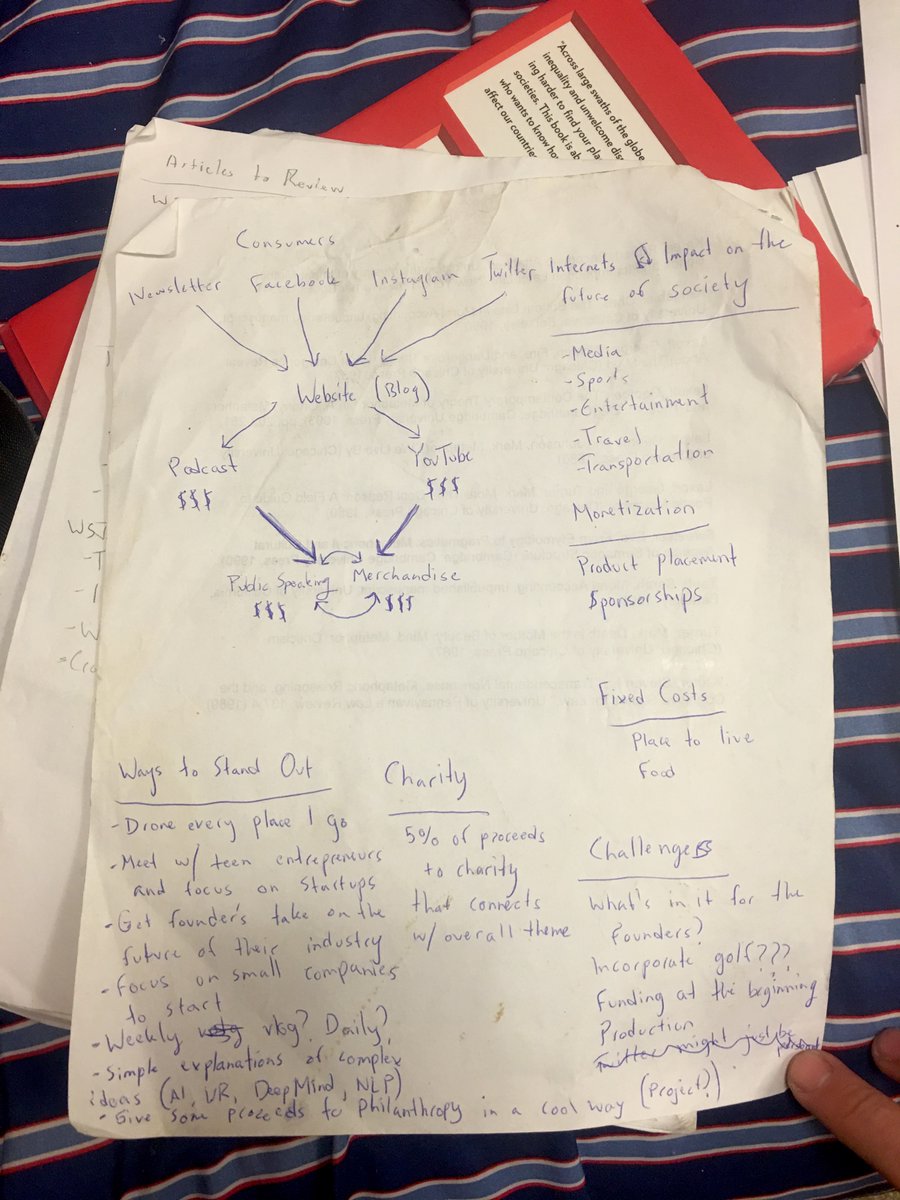 "Across large swaths of the globe
inequality and unwelcome
ing harder to find your
societies. This book is
who wants to know
affect our
Articles to Review
Consumers
Newsletter Facebook Instagram Twitter
Internets Impact on the
future of society
-Media
-Sports
-Entertainment
-Travel
-Transportation
Website (Blog)
Podcast YouTube
$$$ $$$
Public Speaking Merchandise
$$$ $$$
Monetization
Product placement
$ponsorships
Fixed Costs
Place to live
Food
Ways to Stand Out
-Drone every place I go
-Meet w/ teen entrepreneurs
and focus on startups
-Get founder's take on the
future of their industry
-Focus on small companies
to start
-Weekly vlog? Daily?
-Simple explanations of complex
ideas (AI, VR, DeepMind, NLP)
-Give some proceeds to philanthropy in a cool way (Project?)
Charity
5% of proceeds
to charity
that connects
w/ overall theme
Challenges
What's in it for the
founders?
Incorporate golf???
Funding at the beginning
Production
Twitter might just be
WSJ